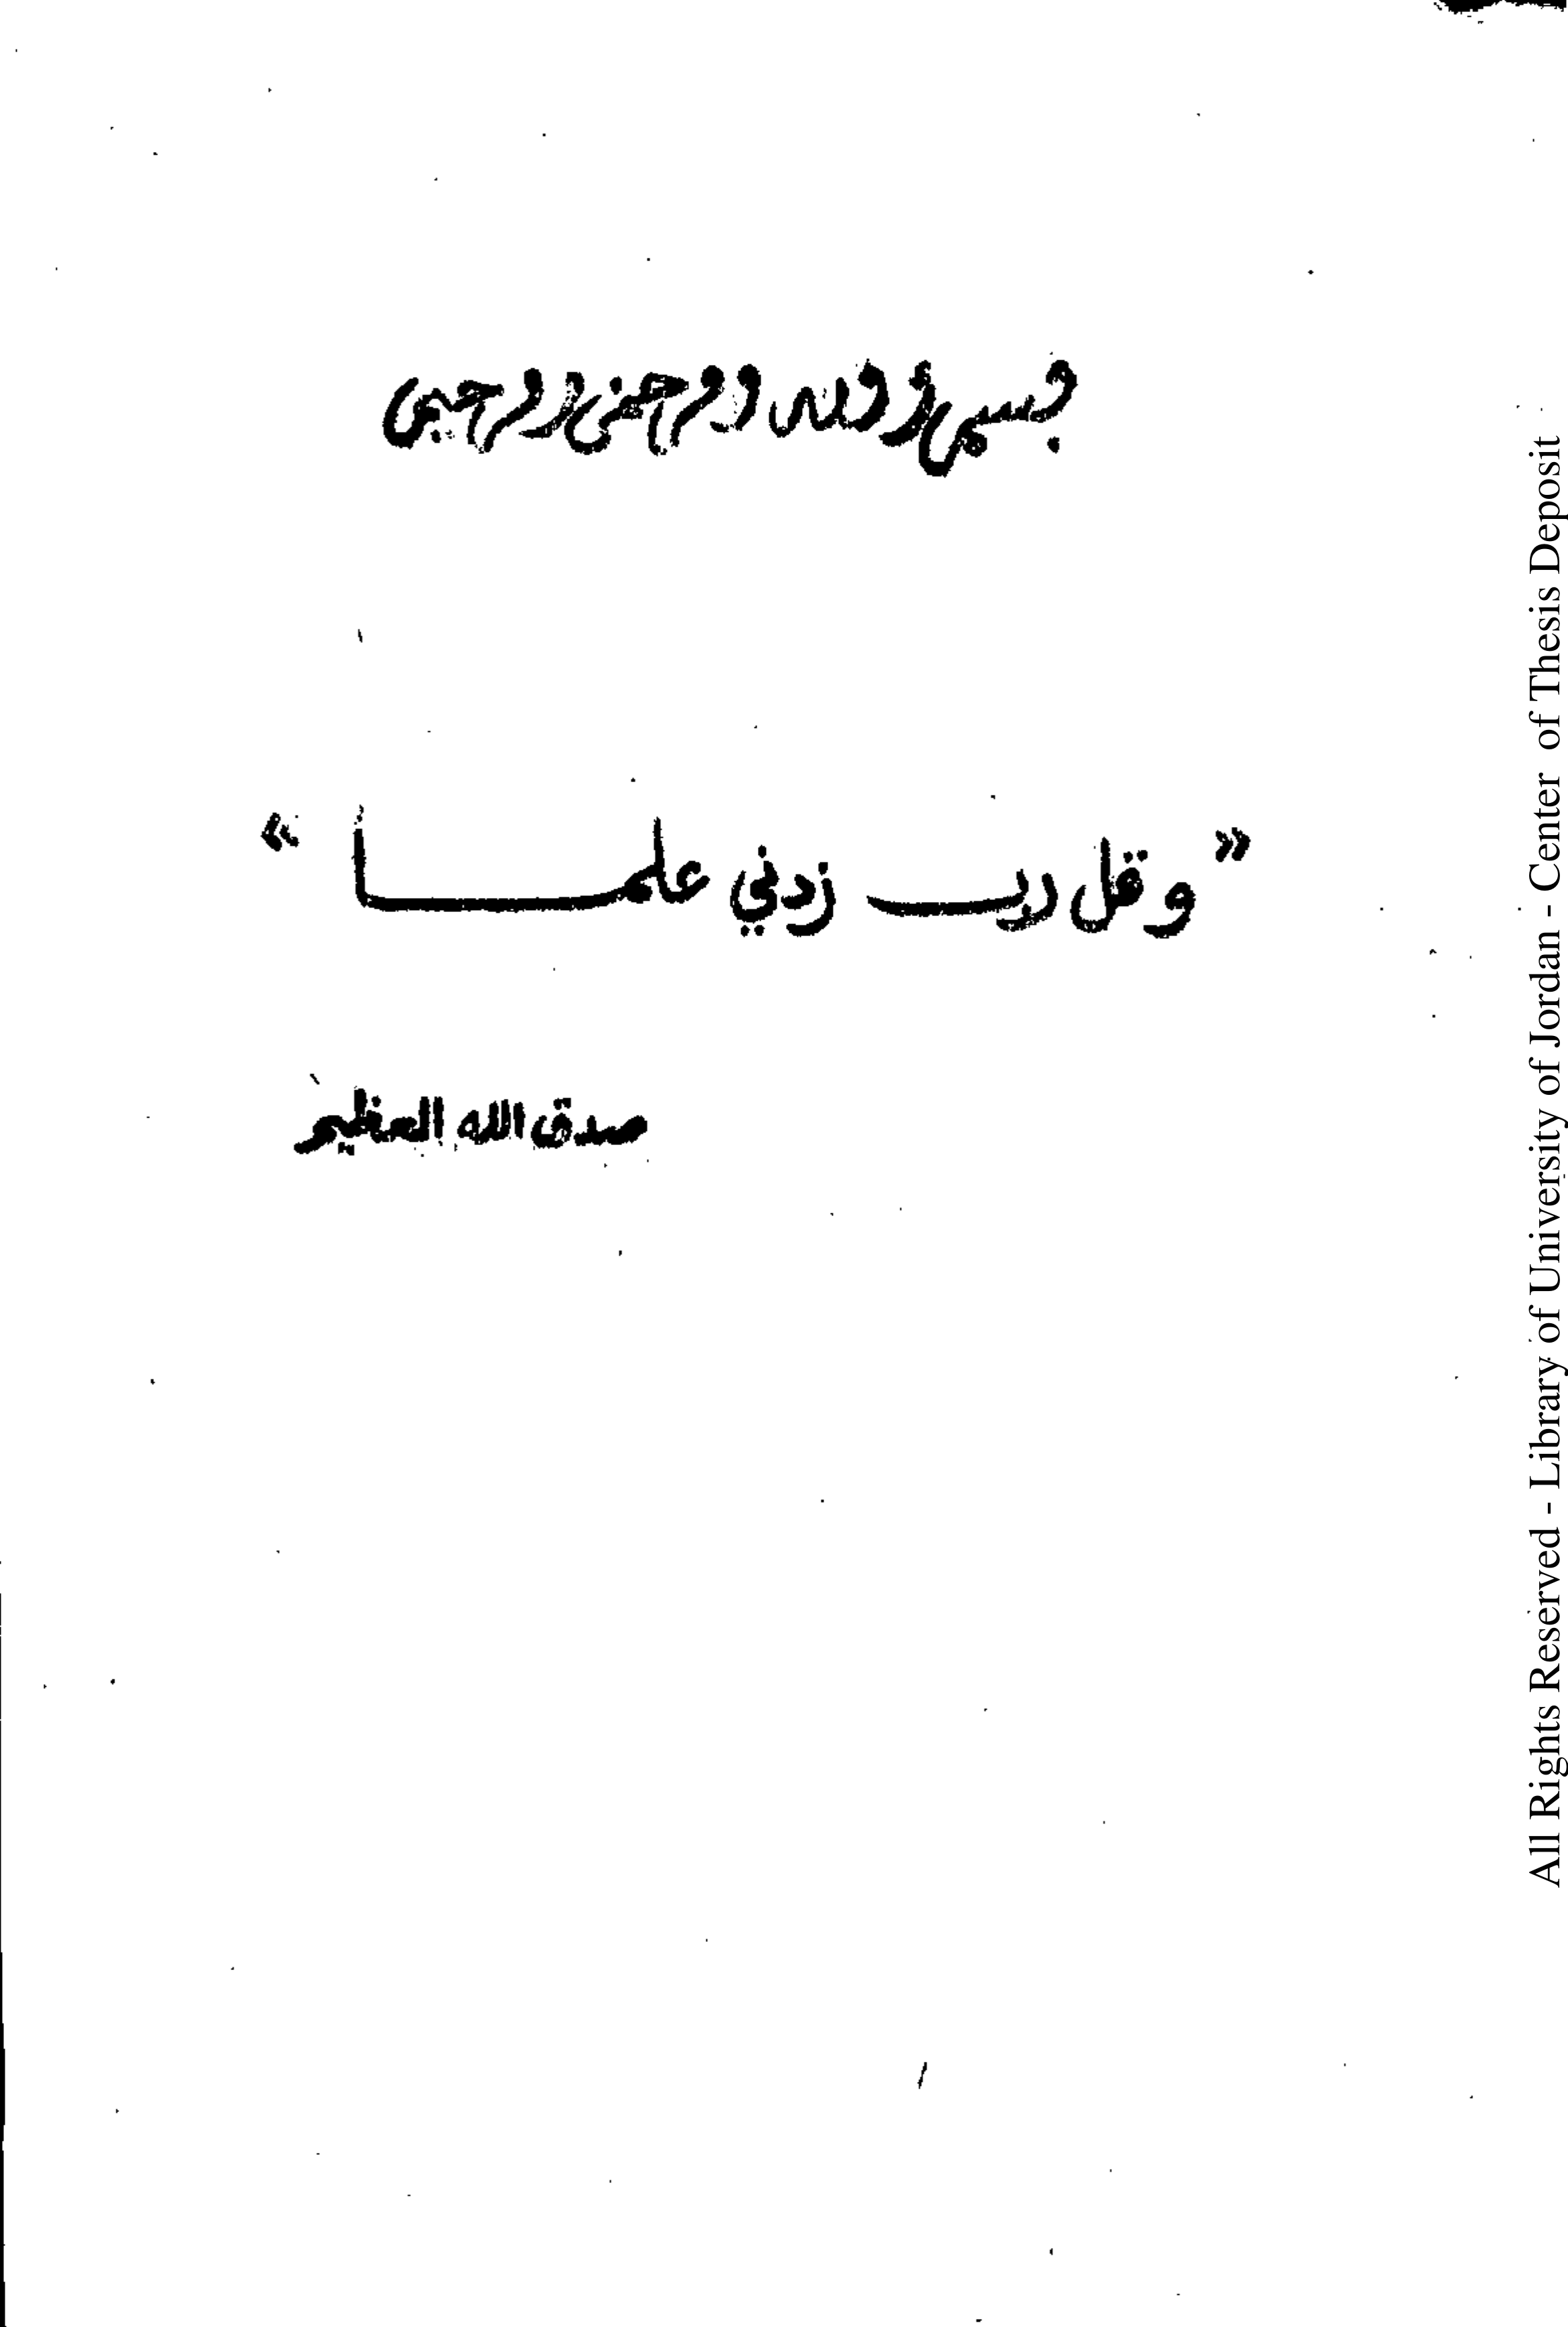 بسم الله الرحمن الرحيم
”وقل رب زدني علمـــــا“
صدق الله العظيم
All Rights Reserved - Library of University of Jordan - Center of Thesis Deposit